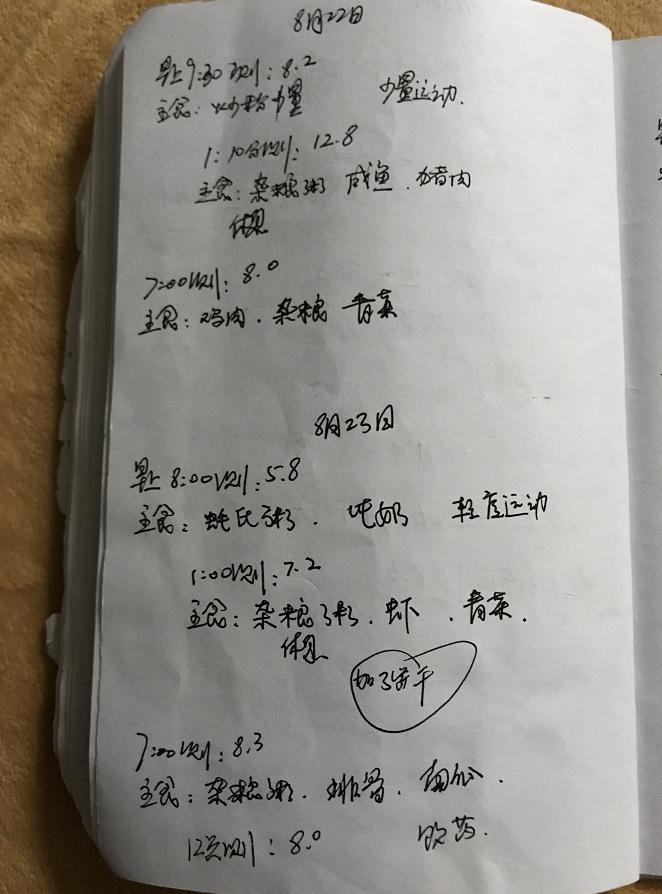 8月22日
早上9:30测:8.2
主食:炒粉少量 少量运动.
1:10分测:12.8
主食:杂粮粥 咸鱼.猪肉
休息
7:00测:8.0
主食:鸡肉.杂粮 青菜
8月23日
早上8:00测:5.8
主食:粥. 炖奶 轻度运动
1:00测:7.2
主食:杂粮粥.虾.青菜.
休息
加了饼干
7:00测:8.3
主食:杂粮粥.排骨.南瓜.
12点测:8.0 吃药.